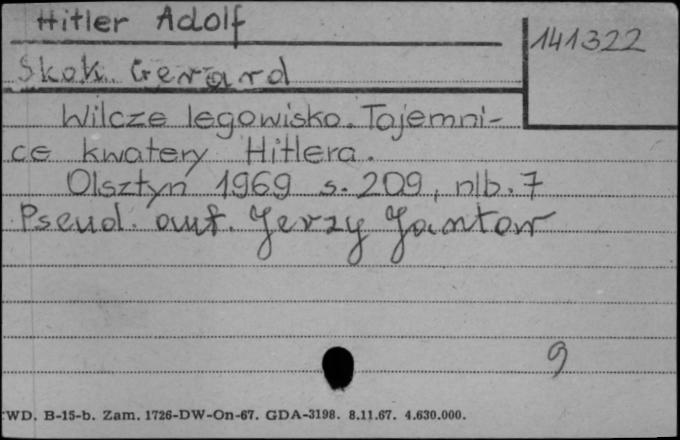 Hitler Adolf
141322
Skok Gerard
Wilcze legowisko. Tajemni-
ce kwatery Hitlera.
Olsztyn 1969 s. 209, nlb. 7
Pseud. aut. Jerzy Jantar
9
WD. B-15-b. Zam. 1726-DW-On-67. GDA-3198. 8.11.67. 4.630.000.